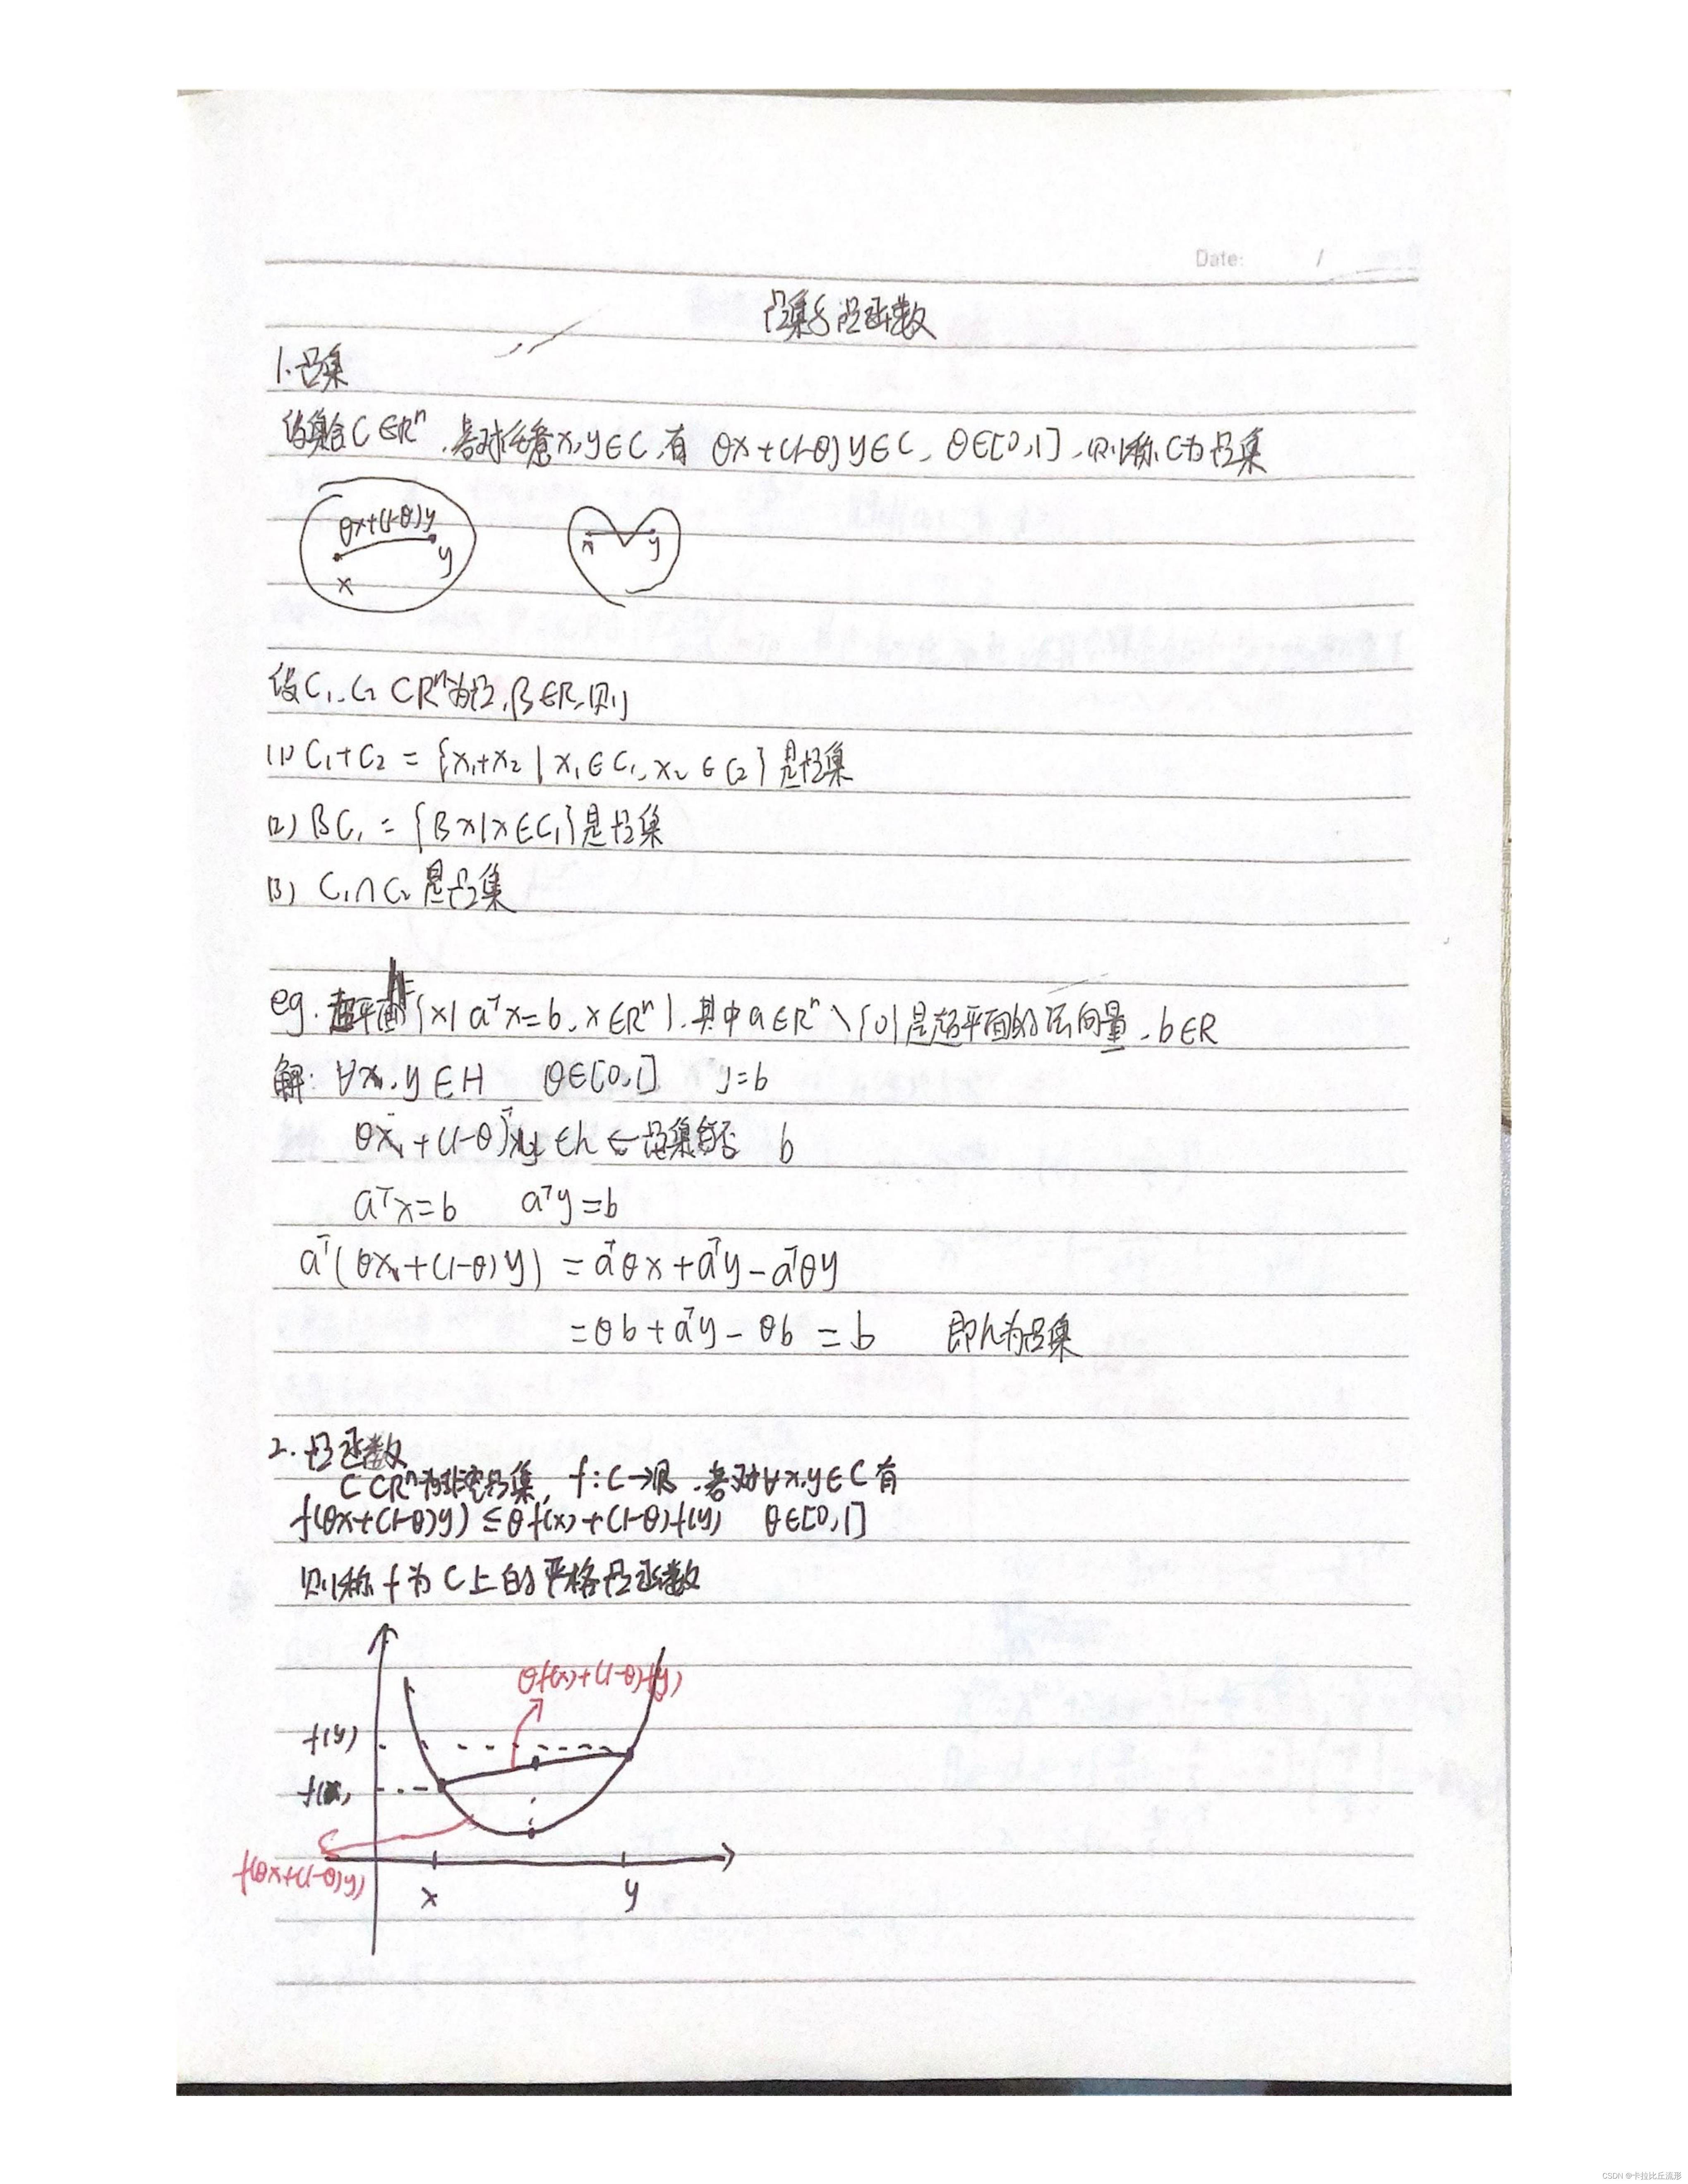 Date: /
凸集与凸函数
1.凸集
设集合C∈Rⁿ,若对任意x,y∈C,有 θx+(1-θ)y∈C, θ∈[0,1],则称C为凸集
θx+(1-θ)y
x y
x y
设C₁,C₂⊂Rⁿ为凸,β∈R,则
(1) C₁+C₂={x₁+x₂|x₁∈C₁,x₂∈C₂}是凸集
(2) βC₁={βx|x∈C₁}是凸集
(3) C₁∩C₂是凸集
eg.超平面H={x|aᵀx=b,x∈Rⁿ},其中a∈Rⁿ\{0}是超平面的法向量,b∈R
解:∀x,y∈H θ∈[0,1] y=b
θx+(1-θ)y∈h ⇐凸集 b
aᵀx=b aᵀy=b
aᵀ(θx+(1-θ)y)=aᵀθx+aᵀy-aᵀθy
=θb+aᵀy-θb=b 即h为凸集
2.凸函数
C⊂Rⁿ为非空凸集, f:C→R,若对∀x,y∈C有
f(θx+(1-θ)y)≤θf(x)+(1-θ)f(y) θ∈[0,1]
则称f为C上的严格凸函数
θf(x)+(1-θ)f(y)
f(y)
f(x)
f(θx+(1-θ)y)
x y
CSDN @卡拉比丘流形